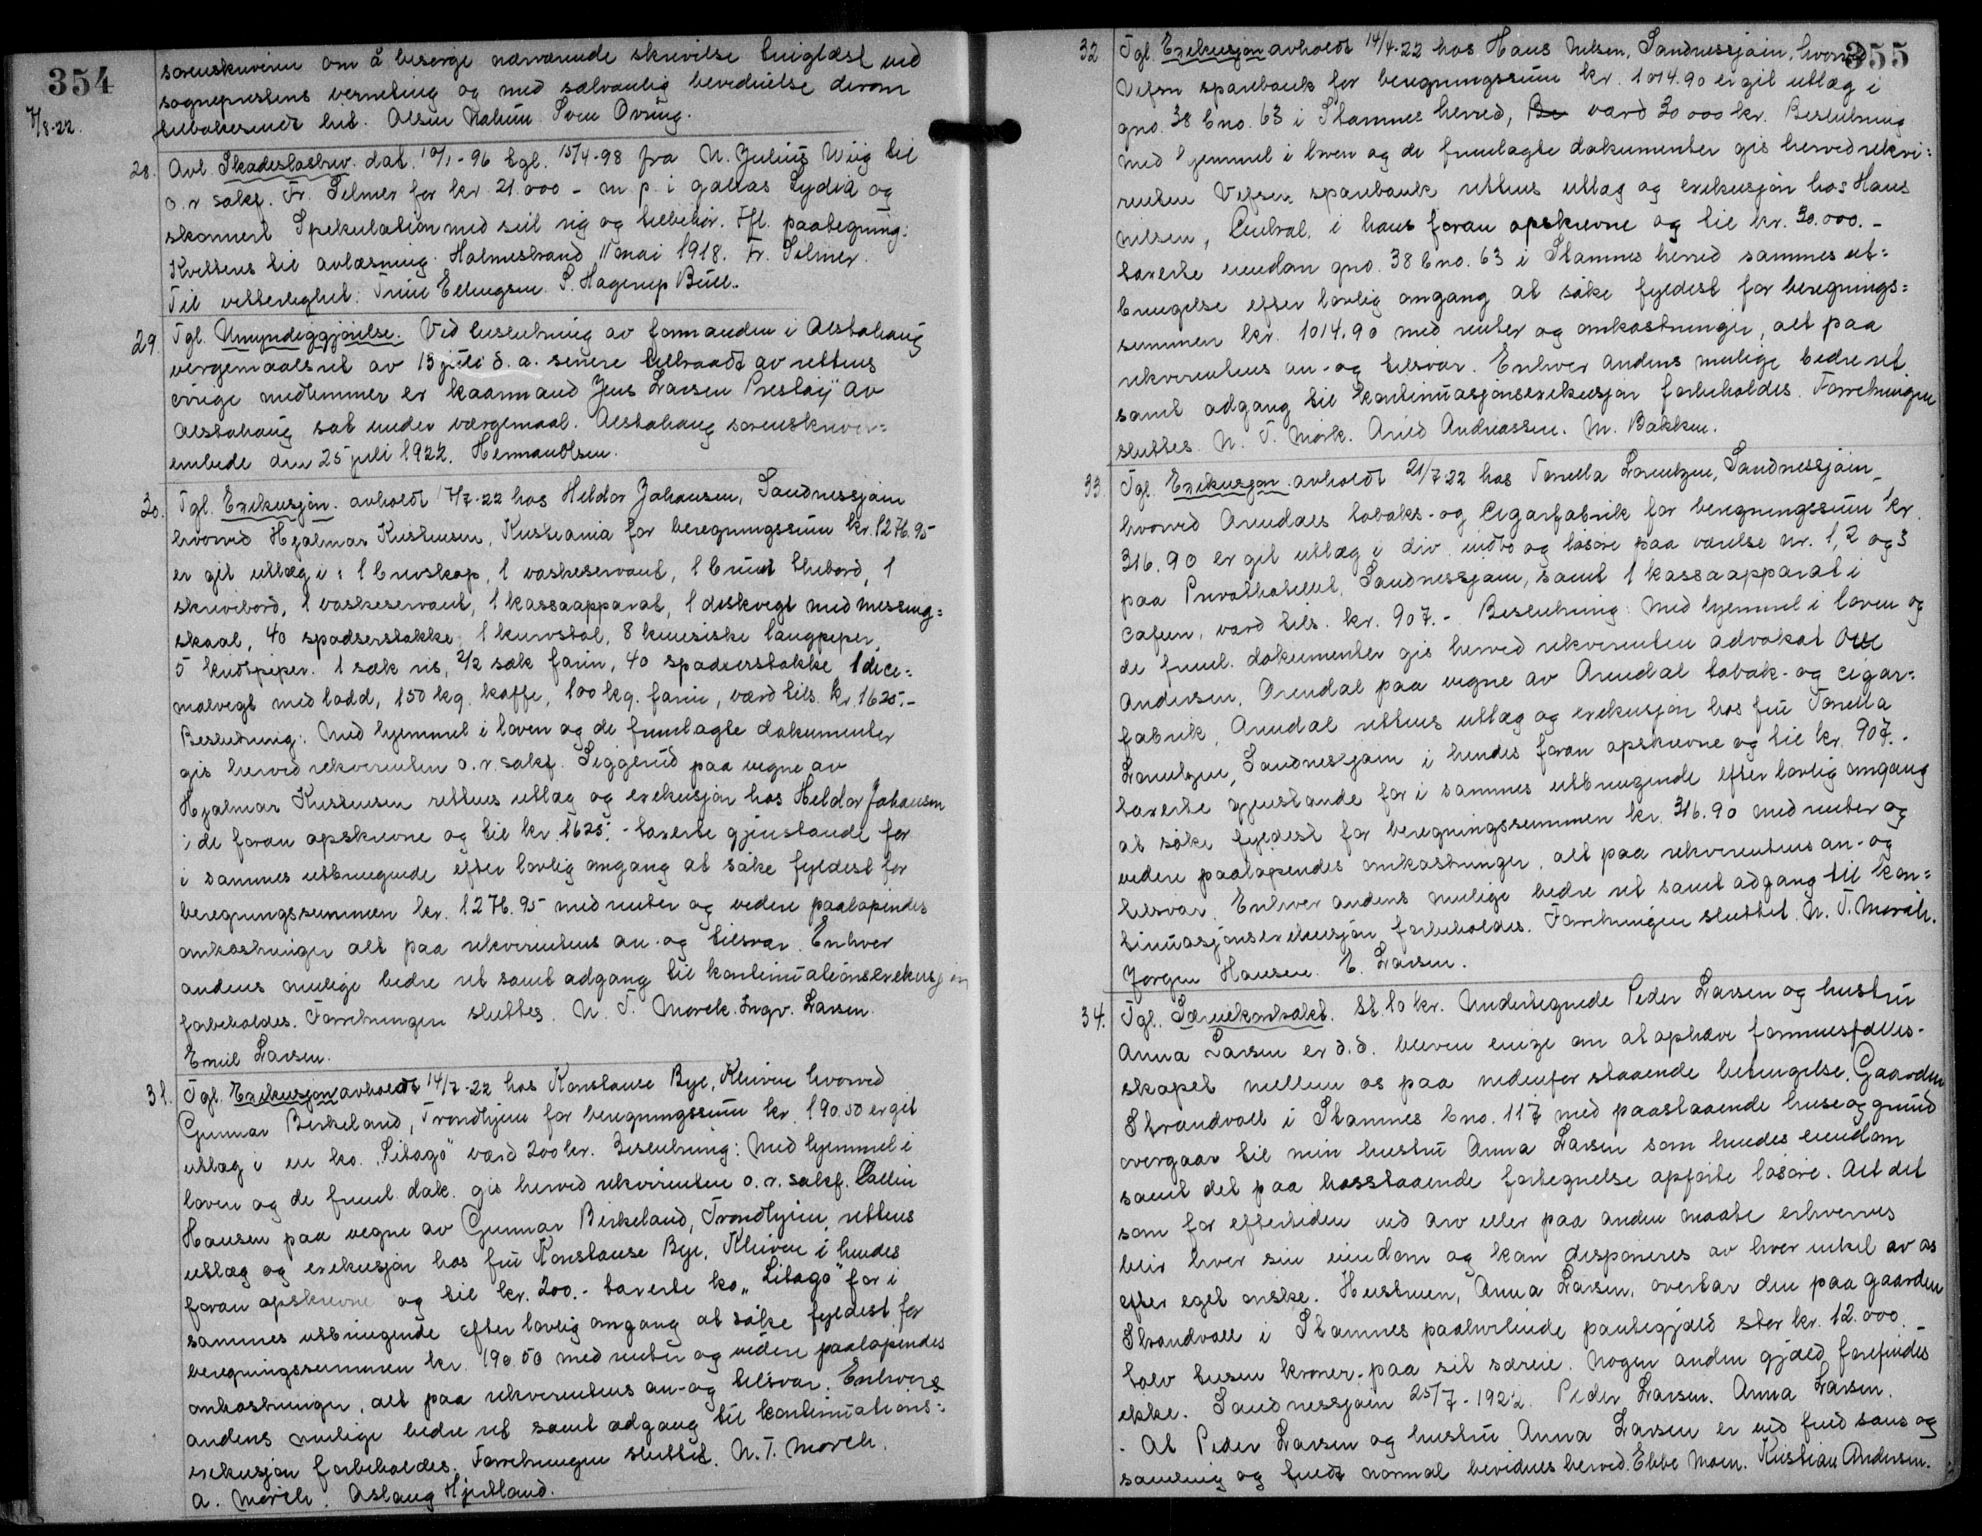 354
7/8-22.
sorenskriveren om å besørge nærværende skrivelse tinglæst ved
sogneprestens verneting og med sedvanlig bevidnelse derom
tilbakesendt hit. Olsen Nalum Sven Øvring.
28. Avl. Skadesløsbrev. dat. 10/1-96 tgl. 15/4-98 fra N. Julius Wiig til
o.r sakf. Fr. Selmer for kr. 21.000 - m. p. i galeas Lydia og
skonnert Spekulation med seil rig og tilbehør. Ifl. paategning:
Kvitteres til avlæsning. Holmestrand 11 mai 1918. Fr. Selmer.
Til vitterlighet: Trine Ellingsen. S. Hagerup Bull.
29. Tgl. Umyndiggjørelse. Ved beslutning av formanden i Alstahaug
vergemaalsret av 15 juli d. a. senere tiltraadt av rettens
øvrige medlemmer er kaarmand Jens Larsen Prestøy av
Alstahaug sat under værgemaal. Alstahaug sorenskriver=
embede den 25 juli 1922. Herman Olsen.
30. Tgl. Exekusjon. avholdt 17/7-22 hos Heldor Johansen, Sandnessjøen
hvorved Hjalmar Kristensen, Kristiania for beregningssum kr. 1276.95
er git utlæg i: 1 brevskap, 1 vaskeservant, 1 brunt thebord, 1
skrivebord, 1 vaskeservant, 1 kassaapparat, 1 diskvegt med messing=
skaal, 40 spadserstokke, 1 kurvstol, 8 kinesiske langpiper,
5 kridtpiper. 1 sæk ris, 2/2 sæk farin, 40 spadserstokke 1 dece=
malvegt med lodd, 150 kg. kaffe, 100 kg. farin, værd tils. kr. 1625.-
Beslutning: Med hjemmel i loven og de fremlagte dokumenter
gis herved rekvirenten o.r. sakf. Siggerud paa vegne av
Hjalmar Kristensen rettens utlæg og exekusjon hos Heldor Johansen
i de foran opskrevne og til kr. 1625.- taxerte gjenstande for
i sammes utbringende efter lovlig omgang at søke fyldest for
beregningssummen kr. 1276.95 med renter og videre paaløpendes
omkostninger alt paa rekvirentens an- og tilsvar. Enhver
andens mulige bedre ret samt adgang til kontinuationsexekusjon
forbeholdes. Forretningen sluttes. N. T. Mørck. Ingv. Larsen.
Emil Larsen.
31. Tgl. Exekusjon avholdt 14/7-22 hos Konstanse Bye, Kleiven hvorved
Gunnar Birkeland, Trondhjem for beregningssum kr. 190.50 er git
utlæg i en ko. "Litago" værd 200 kr. Beslutning: Med hjemmel i
loven og de freml. dok. gis herved rekvirenten o.r. sakf. Collin
Hansen paa vegne av Gunnar Birkeland, Trondhjem, rettens
utlæg og exekusjon hos fru Konstanse Bye, Kleiven i hendes
foran opskrevne og til kr. 200.- taxerte ko "Litago" for i
sammes utbringende efter lovlig omgang at søke fyldest for
beregningssummen kr. 190.50 med renter og videre paaløpendes
omkostninger, alt paa rekvirentens an- og tilsvar. Enhvers
andens mulige bedre ret samt adgang til kontinuations=
exekusjon forbeholdes. Forretningen sluttet. N. T. Mørch.
A. Mørch. Aslaug Hjertland.
355
32 Tgl. Exekusjon avholdt 14/4-22 hos Hans Nilsen, Sandnessjøen, hvorved
Vefsn sparebank for beregningssum kr. 1014.90 er git utlæg i
gno. 38 bno. 63 i Stamnes herred, værd 30 000 kr. Beslutning
med hjemmel i loven og de fremlagte dokumenter gis herved rekvi=
renten Vefsn sparebank rettens utlæg og exekusjon hos Hans
Nilsen, Central, i hans foran opskrevne og til kr. 30.000.-
taxerte eiendom gno. 38 bno. 63 i Stamnes herred sammes ut=
bringelse efter lovlig omgang at søke fyldest for beregnings=
summen kr. 1014.90 med renter og omkostninger, alt paa
rekvirentens an- og tilsvar. Enhver andens mulige bedre ret
samt adgang til kontinuasjonsexekusjon forbeholdes. Forretningen
sluttes. N. T. Mørk. Arild Andreassen. M. Bakken.
33. Tgl. Exekusjon avholdt 21/7-22 hos Tonella Lorentzen, Sandnessjøen
hvorved Arendals tobaks- og Cigarfabrik for beregningssum kr.
316.90 er git utlæg i div. indbo og løsøre paa værelse nr. 1, 2 og 3
paa Privathotellet, Sandnessjøen, samt 1 kassaapparat i
Cafeen, værd tils. kr. 907.- Beslutning: Med hjemmel i loven og
de freml. dokumenter gis herved rekvirenten advokat Ole
Andersen, Arendal paa vegne av Arendal tobak- og cigar=
fabrik, Arendal rettens utlæg og exekusjon hos fru Tonella
Lorentzen, Sandnessjøen i hendes foran opskrevne og til kr. 907.-
taxerte gjenstande for i sammes utbringende efter lovlig omgang
at søke fyldest for beregningssummen kr. 316.90 med renter og
videre paaløpendes omkostninger, alt paa rekvirentens an- og
tilsvar. Enhver andens mulige bedre ret samt adgang til kon=
tinuasjonsexekusjon forbeholdes. Forretningen sluttet. N. T. Mørch.
Jørgen Hansen. E. Larsen.
34. Tgl. Særeiekontrakt. St. 10 kr. Undertegnede Peder Larsen og hustru
Anna Larsen er d.d. bleven enige om at ophæve formuesfælles-
skapet mellem os paa nedenfor staaende betingelse. Gaarden
Strandvoll i Stamnes bno. 117 med paastaaende huse og grund
overgaar til min hustru Anna Larsen som hendes eiendom
samt det paa hosstaaende fortegnelse opførte løsøre. Alt det
som for eftertiden ved arv eller paa anden maate erhverves
blir hver sin eiendom og kan disponeres av hver enkelt av os
efter eget ønske. Hustruen, Anna Larsen, overtar den paa gaarden
Strandvoll i Stamnes paahvilende pantegjæld stor kr. 12.000.-
tolv tusen kroner - paa sit særeie. Nogen anden gjæld forefindes
ikke. Sandnessjøen 25/7-1922. Peder Larsen. Anna Larsen.
. At Peder Larsen og hustru Anna Larsen er ved fuld sans og
samling og fuldt normal bevidnes herved. Ebbe Moen. Kristian Andersen.